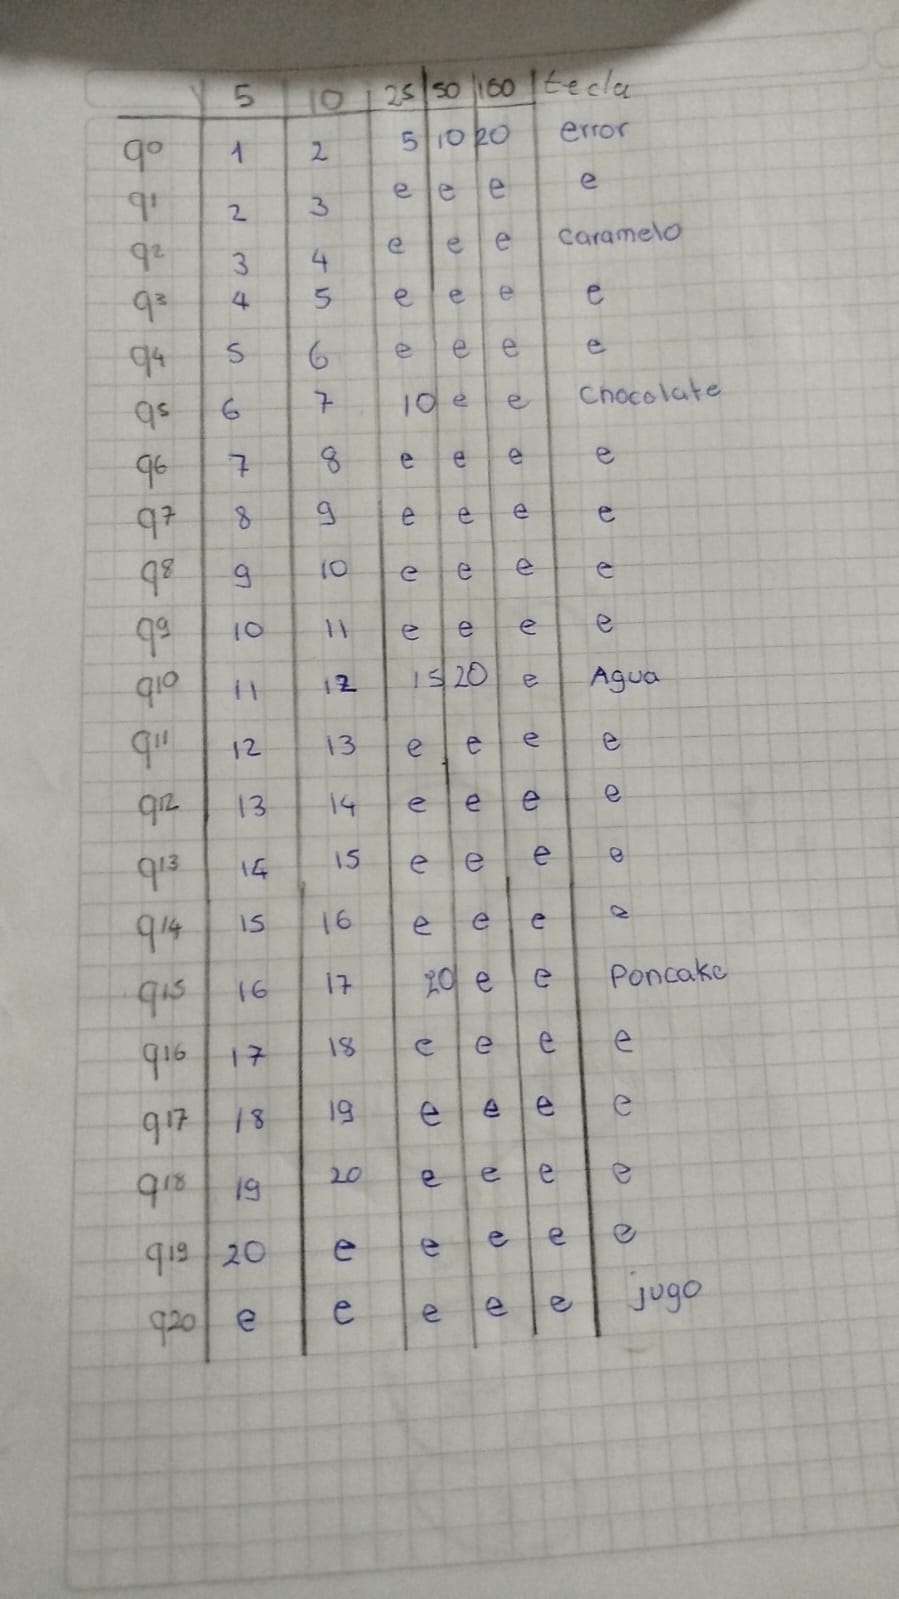 5 10 25 50 100 tecla
q0 1 2 5 10 20 error
q1 2 3 e e e e
q2 3 4 e e e caramelo
q3 4 5 e e e e
q4 5 6 e e e e
q5 6 7 10 e e Chocolate
q6 7 8 e e e e
q7 8 9 e e e e
q8 9 10 e e e e
q9 10 11 e e e e
q10 11 12 15 20 e Agua
q11 12 13 e e e e
q12 13 14 e e e e
q13 14 15 e e e e
q14 15 16 e e e e
q15 16 17 20 e e Poncake
q16 17 18 e e e e
q17 18 19 e e e e
q18 19 20 e e e e
q19 20 e e e e e
q20 e e e e e jugo